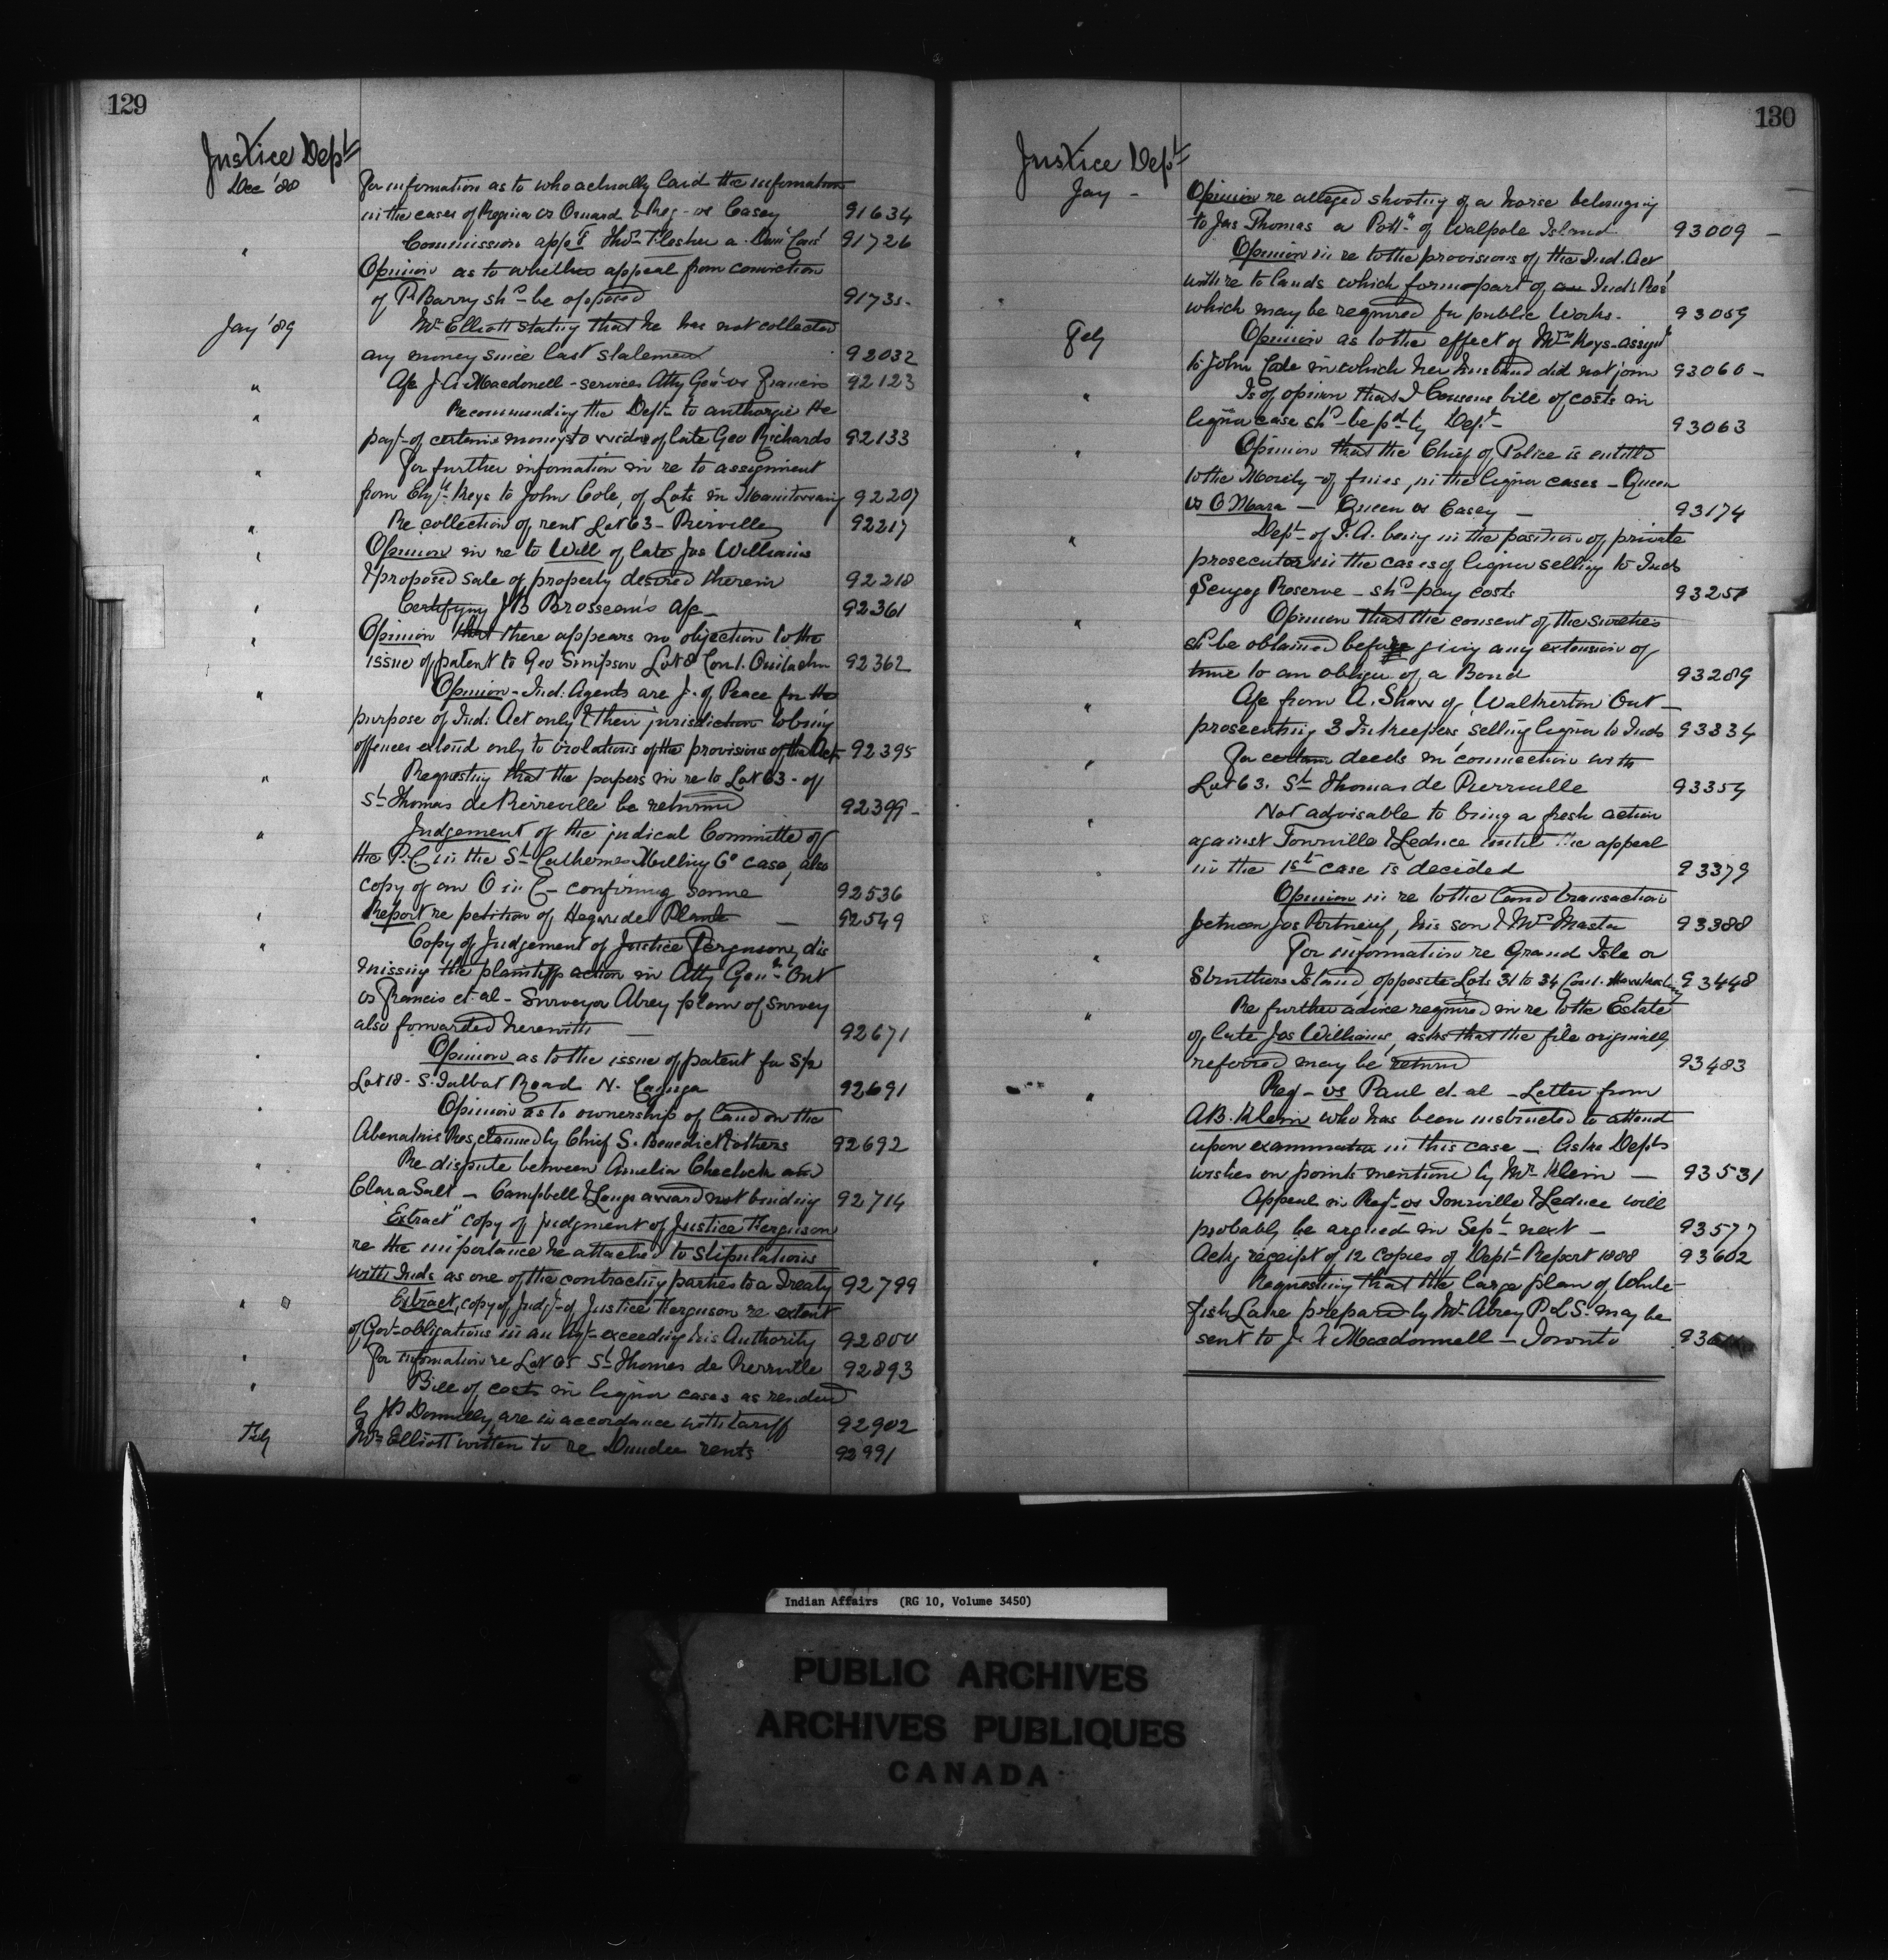 129
Justice Dept
Dec '88 For information as to who actually laid the information
in the cases of Regina vs Omard & Reg - vs Casey 91634
" Commission app't Thos Flesher a Dom' Cons' 91726
Opinion as to whether appeal from conviction
of P. Barry shd be opposed 91735
Jay '89 Mr Elliott stating that he has not collected
any money since last statement 92032
" A/c J. A. Macdonell - services Atty Gen' vs Francis 92123
" Recommending the Dept to authorize the
payt of certain moneys to widow of late Geo Richards 92133
" For further information in re to assignment
from Keys to John Cole, of Lots in Manitowaning 92207
" Re collection of rent Lot 63 - Pierville 92217
" Opinion in re to Will of late Jas Williams
& proposed sale of property desired therein 92218
" Certifying JB Brosseau's a/c 92361
" Opinion that there appears no objection to the
issue of patent to Geo Simpson Lot 8 Con 1. 92362
" Opinion - Ind: Agents are J. of Peace for the
purpose of Ind: Act only & their jurisdiction
offences extend only to violations of the provisions of the Act 92395
" Requesting that the papers in re to Lot 63 - of
St Thomas de Pierreville be returned 92399 -
" Judgement of the judical Committe of
the P.C. in the St Catherines Milling Co case, also
copy of an O in C - confirming same 92536
" Report re petition of Plante — 92549
" Copy of Judgement of Justice Ferguson, dis
missing the plaintiffs action in Atty Genl Ont
vs Francis et. al - Surveyor Abrey plan of survey
also forwarded herewith — 92671
" Opinion as to the issue of patent for S½
Lot 18 - S. Talbot Road N. Cayuga 92691
" Opinion as to ownership of land on the
Abenakis Res, claimed by Chief S. Benedict & others 92692
" Re dispute between Amelia Cheechok and
Clara Salt — Campbell & Longs award not binding 92714
" "Extract" copy of judgment of Justice Ferguson
re the importance he attached to Stipulations
with Inds as one of the contracting parties to a Treaty 92799
" Extract, copy of Judgt of Justice Ferguson re extent
of Govt obligations in an Agt exceeding his Authority 92800
" For information re Lot 65 St Thomas de Pierrville 92893
" Bill of costs in liquor cases as rendered
by Donnelly, are in accordance with tariff 92902
Feby Mr Elliott written to re Dundee rents 92991
130
Justice Dept
Jay - Opinion re alleged shooting of a horse belonging
to Jas Thomas a Pott. of Walpole Island 93009 -
Opinion in re to the provisions of the Ind. Act
with re to lands which form part of an Inds Res'
which may be required for public Works - 93059
Feby Opinion as to the effect of Mrs Keys - assignt
to John Cole in which her husband did not join 93060 -
" Is of opinion that J Cousens bill of costs in
liquor case shd be pd by Dept - 93063
" Opinion that the Chief of Police is entitled
to the Moeity - of fines, in the liquor cases - Queen
vs O Mara — Queen vs Casey — 93174
" Dept of I. A. being in the position of private
prosecutor in the cases of liquor selling to Inds
Scugog Reserve - shd pay costs 93251
" Opinion that the consent of the sureties
shd be obtained before giving any extension of
time to an obligor of a Bond 93289
" A/c from A. Shaw of Walkerton Ont —
prosecuting 3 Inkeepers selling liquor to Inds 93334
" For certain deeds in connection with
Lot 63. St Thomas de Pierrville 93354
" Not advisable to bring a fresh action
against Tonville & Leduce until the appeal
in the 1st case is decided 93379
Opinion in re to the land transaction
between Jos Portneuf, his son & Mrs Masta 93388
" For information re Grand Isle or
Struthers Island, opposite Lots 31 to 34 Con 1. 93448
" Re further advice required in re to the Estate
of late Jas Williams, asks that the file originally
referred may be return 93483
" Reg - vs Paul et. al - Letter from
AB. Klein who has been instructed to attend
upon examination in this case — Asks Depts
wishes on points mentioned by Mr Klein — 93531
Appeal in Reg - vs Tonville & Leduce will
probably be argued in Sept next — 93577
" Ackg receipt of 12 Copies of Dept Report 1888 93602
Requesting that the large plan of White
fish Lake prepared by Mr Abrey P.L.S. may be
sent to J. A Macdonnell - Toronto
Indian Affairs (RG 10, Volume 3450)
PUBLIC ARCHIVES
ARCHIVES PUBLIQUES
CANADA